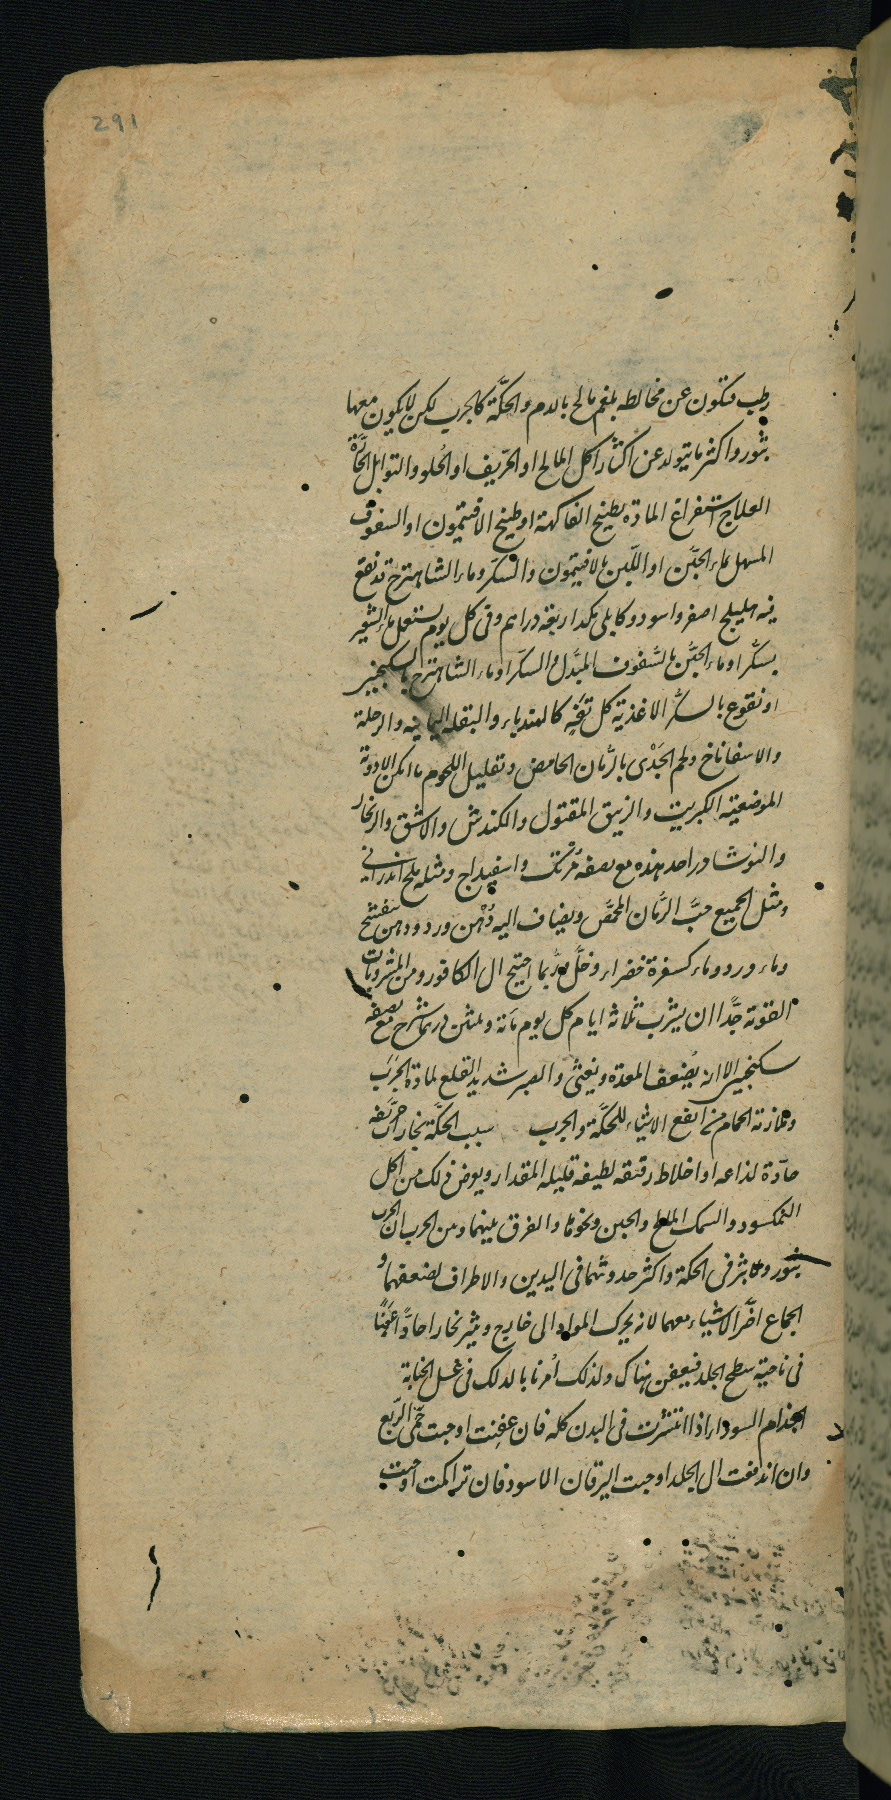 291
رطب فتكون عن مخالطه بلغم مالح بالدم والحكّة كالجرب لكن لا يكون معها
بثور واكثر ما يتولد عن اكثار اكل المالح او الحرّيف او الحُلو والتوابل الحارّة
العلاج استفراغ المادّه بطبيخ الفاكهة او طبيخ الافتيمون او السفوف
المسهل بماء الجبّن او اللّبن بالافتيمون والسكّر وماء الشاهترج قد نقع
فيه هليلج اصفر واسود وكابلى اربعة دراهم وفى كل يوم يستعمل ماء الشعير
بسكّر او ماء الجبّن بالسّفوف المبدّل والسكّر او ماء الشاهترج بالسكنجبين
او نقوع بالسكّر الاغذية كل تَفِه كالهندباء والبقله اليمانيه والرجلة
والاسفاناخ ولحم الجَدْى بالرّمان الحامض وتقليل اللحوم ما امكن الادوية
الموضعيّة الكبريت والزيبق المقتول والكندش والاشق والزنجار
والنوشادر احد هذه مع نصفه مُرْتك واسفيداج ومثله ملح اندرانى
ومثل الجميع حبّ الرّمان المحمّص ويضاف اليه دُهْن ورد ودهن بنفسج
وماء ورد وماء كسفرة خضراء وخلّ وربما احتيج الى الكافور ومن المشروبات
القوية جدًّا ان يشرب ثلاثة ايام كل يوم مائة وثلثين درهما شيرج مع نصفه
سكنجبين الا انه يُضعف المعدة ويغثى والصبر شديد القلع لمادة الجرَب
وملازمة الحمام من انفع الاشياء للحكّة والجرب سبب الحكّة بخار حرّيفه
حادّة لذاعه او اخلاط رقيقه لطيفه قليله المقدار ويعرض ذلك من اكل
النمكسود والسمك المالح والجبن ونحوها والفرق بينهما وبين الجرب ان الجرب
بثور ولا بثر فى الحكة واكثر حدوثهما فى اليدين والاطراف لضعفهما و
الجماع اضّر الاشياء معهما لانه يحرك المواد الى خارج ويثير بخارا حادًّا عَفِنًا
فى ناحية سطح الجلد فيعفن هناك ولذلك اُمرنا بالدلك فى غسل الجنابة
الجذام السوداء اذا انتشرت فى البدن كله فان عفنت اوجبت حمّى الرّبع
وان اندفعت الى الجلد اوجبت اليرقان الاسود فان تراكمت اوجبت